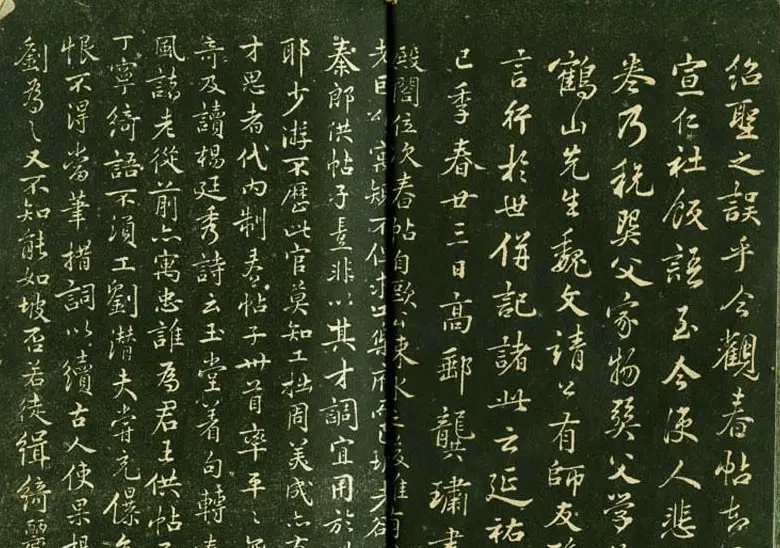 紹聖之誤乎今觀春帖
宣仁社飯語至今使人悲
卷乃稅巽父家物巽父学
鶴山先生魏文靖公有師友
言行於世併記諸此云延祐
己季春廿三日高郵龔璛書
殿閣位次春帖自歐公東坡之後惟有
老臣
秦郎供帖子豈非以其才調宜用於
耶少游不歷此官莫知工拙周美成亦有
才思者代内制春帖子卅首率平々無
奇及讀楊廷秀詩云玉堂着句轉春
風諸老從前亦寓忠誰為君王供帖子
丁寧綺語不須工劉潛夫嘗充儤
恨不得當筆措詞以續古人使果
劉為之又不知能如坡否若徒緝綺麗